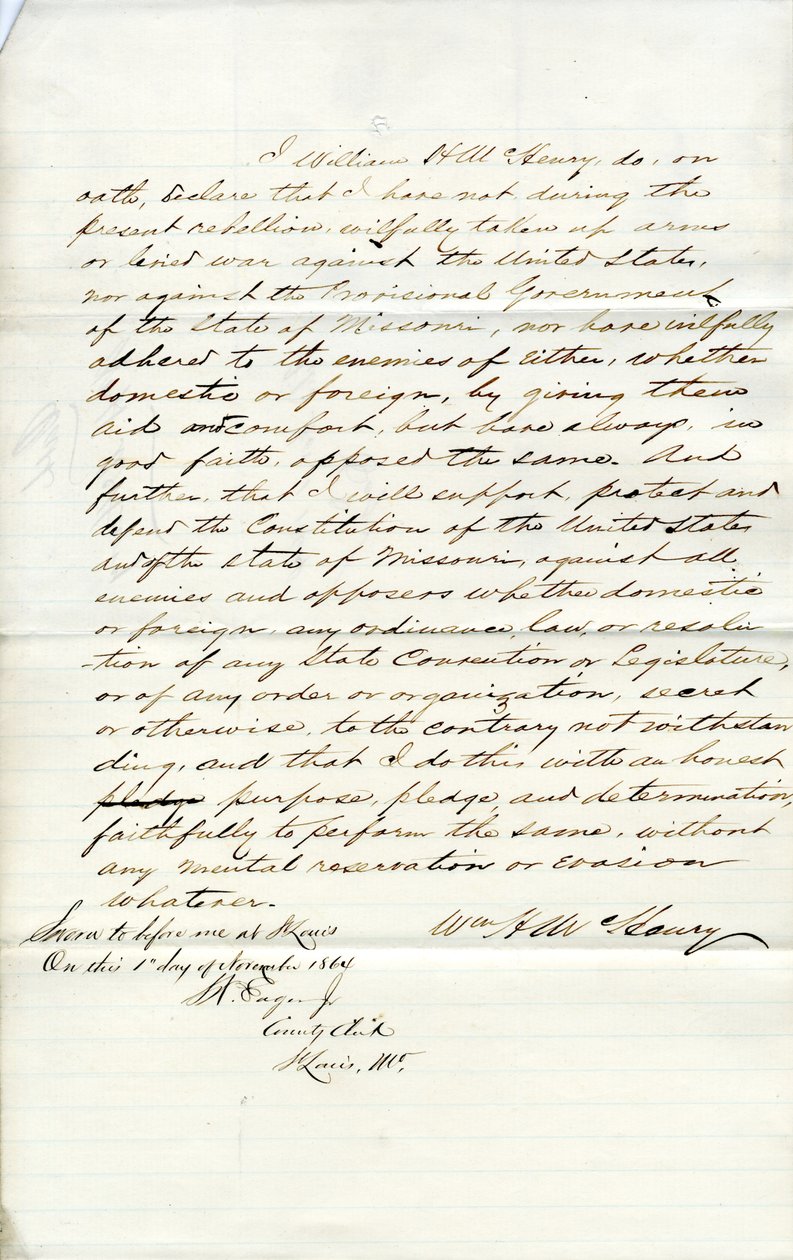 I William H McHenry, do, on
oath, declare that I have not during the
present rebellion, wilfully taken up arms
or levied war against the United States,
nor against the Provisional Government
of the State of Missouri, nor have wilfully
adhered to the enemies of either, whether
domestic or foreign, by giving them
aid and comfort, but have always, in
good faith, opposed the same. And
further, that I will support, protect and
defend the Constitution of the United States
and of the State of Missouri, against all
enemies and opposers whether domestic
or foreign, any ordinance, law, or resolu
-tion of any State Convention or Legislature,
or of any order or organization, secret
or otherwise, to the contrary not withstan
ding, and that I do this with an honest
pledge purpose, pledge, and determination,
faithfully to perform the same, without
any mental reservation or evasion
whatever.
Wm H McHenry
Sworn to before me at St Louis
On this 1" day of November 1864
Eager Jr
County Clerk
St Louis, Mo.